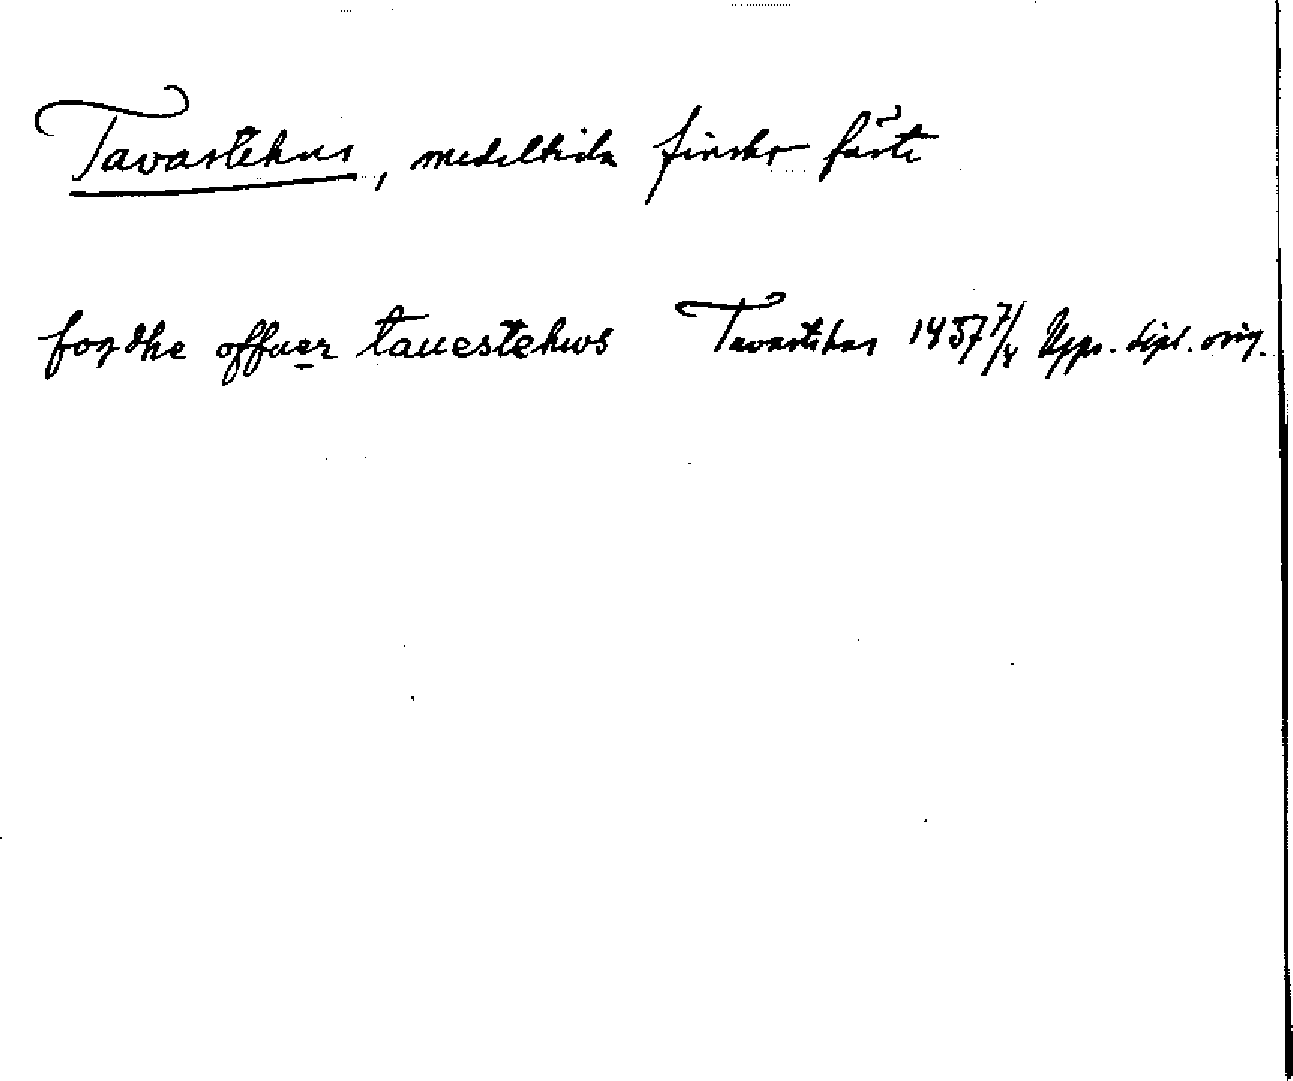 Tavastehus, medeltida finsk fäste
fordhe offuer tauestehws Tavastehus 1457 7/4 Upps. dipl. orig.